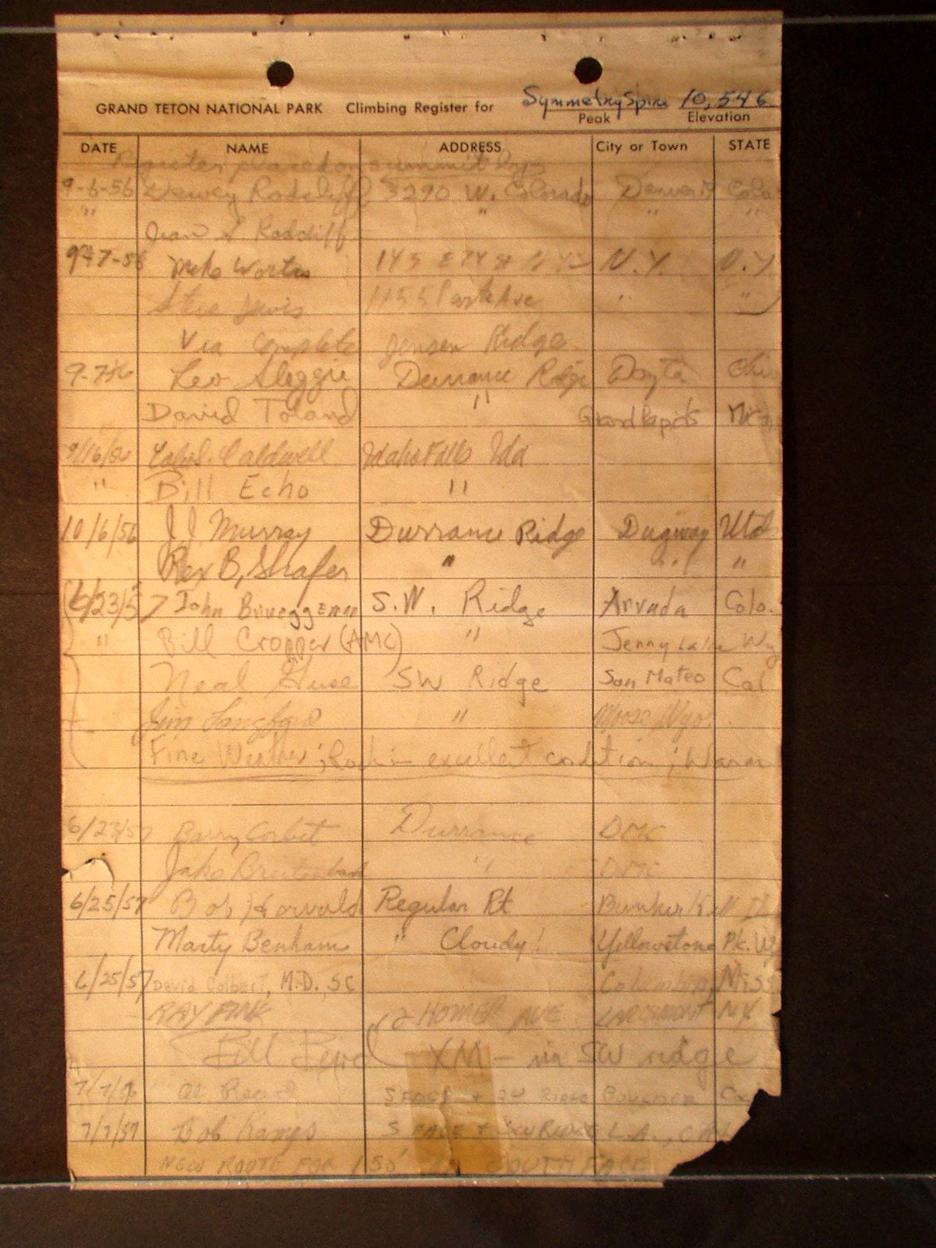 GRAND TETON NATIONAL PARK Climbing Register for Symmetry Spire 10,546
Peak Elevation
DATE NAME ADDRESS City or Town STATE
Register placed on summit by
9-6-56 Dewey Radcliff 3290 W. Colorado Denver Colo
" " " "
Jean S. Radcliff
9-7-56 Mike Wortis 145 E 74 St N.Y. N.Y.
Steve Jervis 1155 Park Ave " "
Via Complete Jensen Ridge
9-7-56 Leo Durrance Ridge
David Toland " Grand Rapids
9/16/56 Caldwell Idaho Falls Ida
" Bill Echo "
10/6/56 JJ Murray Durrance Ridge Dugway Utah
Rex B. Shafer " " "
6/23/57 John Brueggeman S.W. Ridge Arvada Colo.
" Bill Cropper (AMC) " Jenny Lake Wy
Neal SW Ridge San Mateo Cal
Jim Langford " Moose Wyo.
Fine Weather; Rock in excellent condition; Warm
6/23/57 Barry Corbet Durrance DMC
Jake Breitenbach " DMC
6/25/57 Bob Regular Rt Bunker Hill
Marty Benham " Cloudy! Yellowstone Pk. W
6/25/57 David Colbert, M.D. SC Columbus Miss
RAY FINK 2 HOMER AVE LARCHMONT N.Y.
Bill XM - via SW ridge
7/7/56 Al Read S FACE + SW RIDGE BOULDER
7/7/57 Bob Kamps S FACE + SW RIDGE L.A., CAL
NEW ROUTE FOR 150' SOUTH FACE